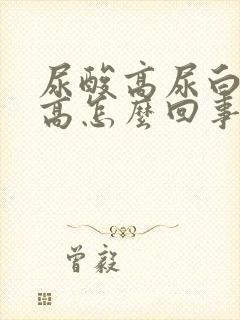 尿酸高尿白
高怎麼回事
曾毅